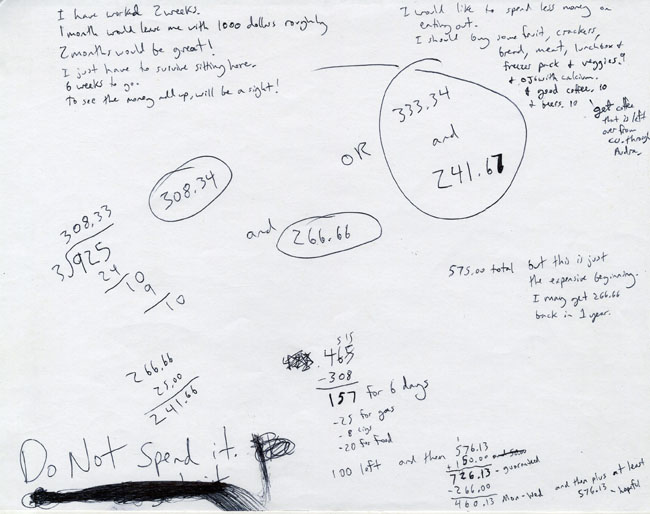 I have worked 2 weeks.
1 month would leave me with 1000 dollars roughly
2 months would be great!
I just have to survive sitting here.
6 weeks to go.
To see the money add up, will be a sight!
I would like to spend less money on
eating out.
I should buy some fruit, crackers,
bread, meat, lunchbox &
freezer pack & veggies.?
& OJ with calcium.
& good coffee. 10
& beers. 10
! get coffee
that is left
over from
co. through
Audra.
333.34
and
241.67
OR
308.34
and
266.66
308.33
3)925
24
10
9
10
575.00 total but this is just
the expensive beginning.
I may get 266.66
back in 1 year.
266.66
25.00
241.66
5 15
465
-308
157 for 6 days
-25 for gas
-8 cigs
-20 for food
100 left and then
1
576.13
+150.00
726.13 - guaranteed
-266.00
460.13 Mon-Wed and then plus at least
576.13 - hopeful
Do Not Spend it.